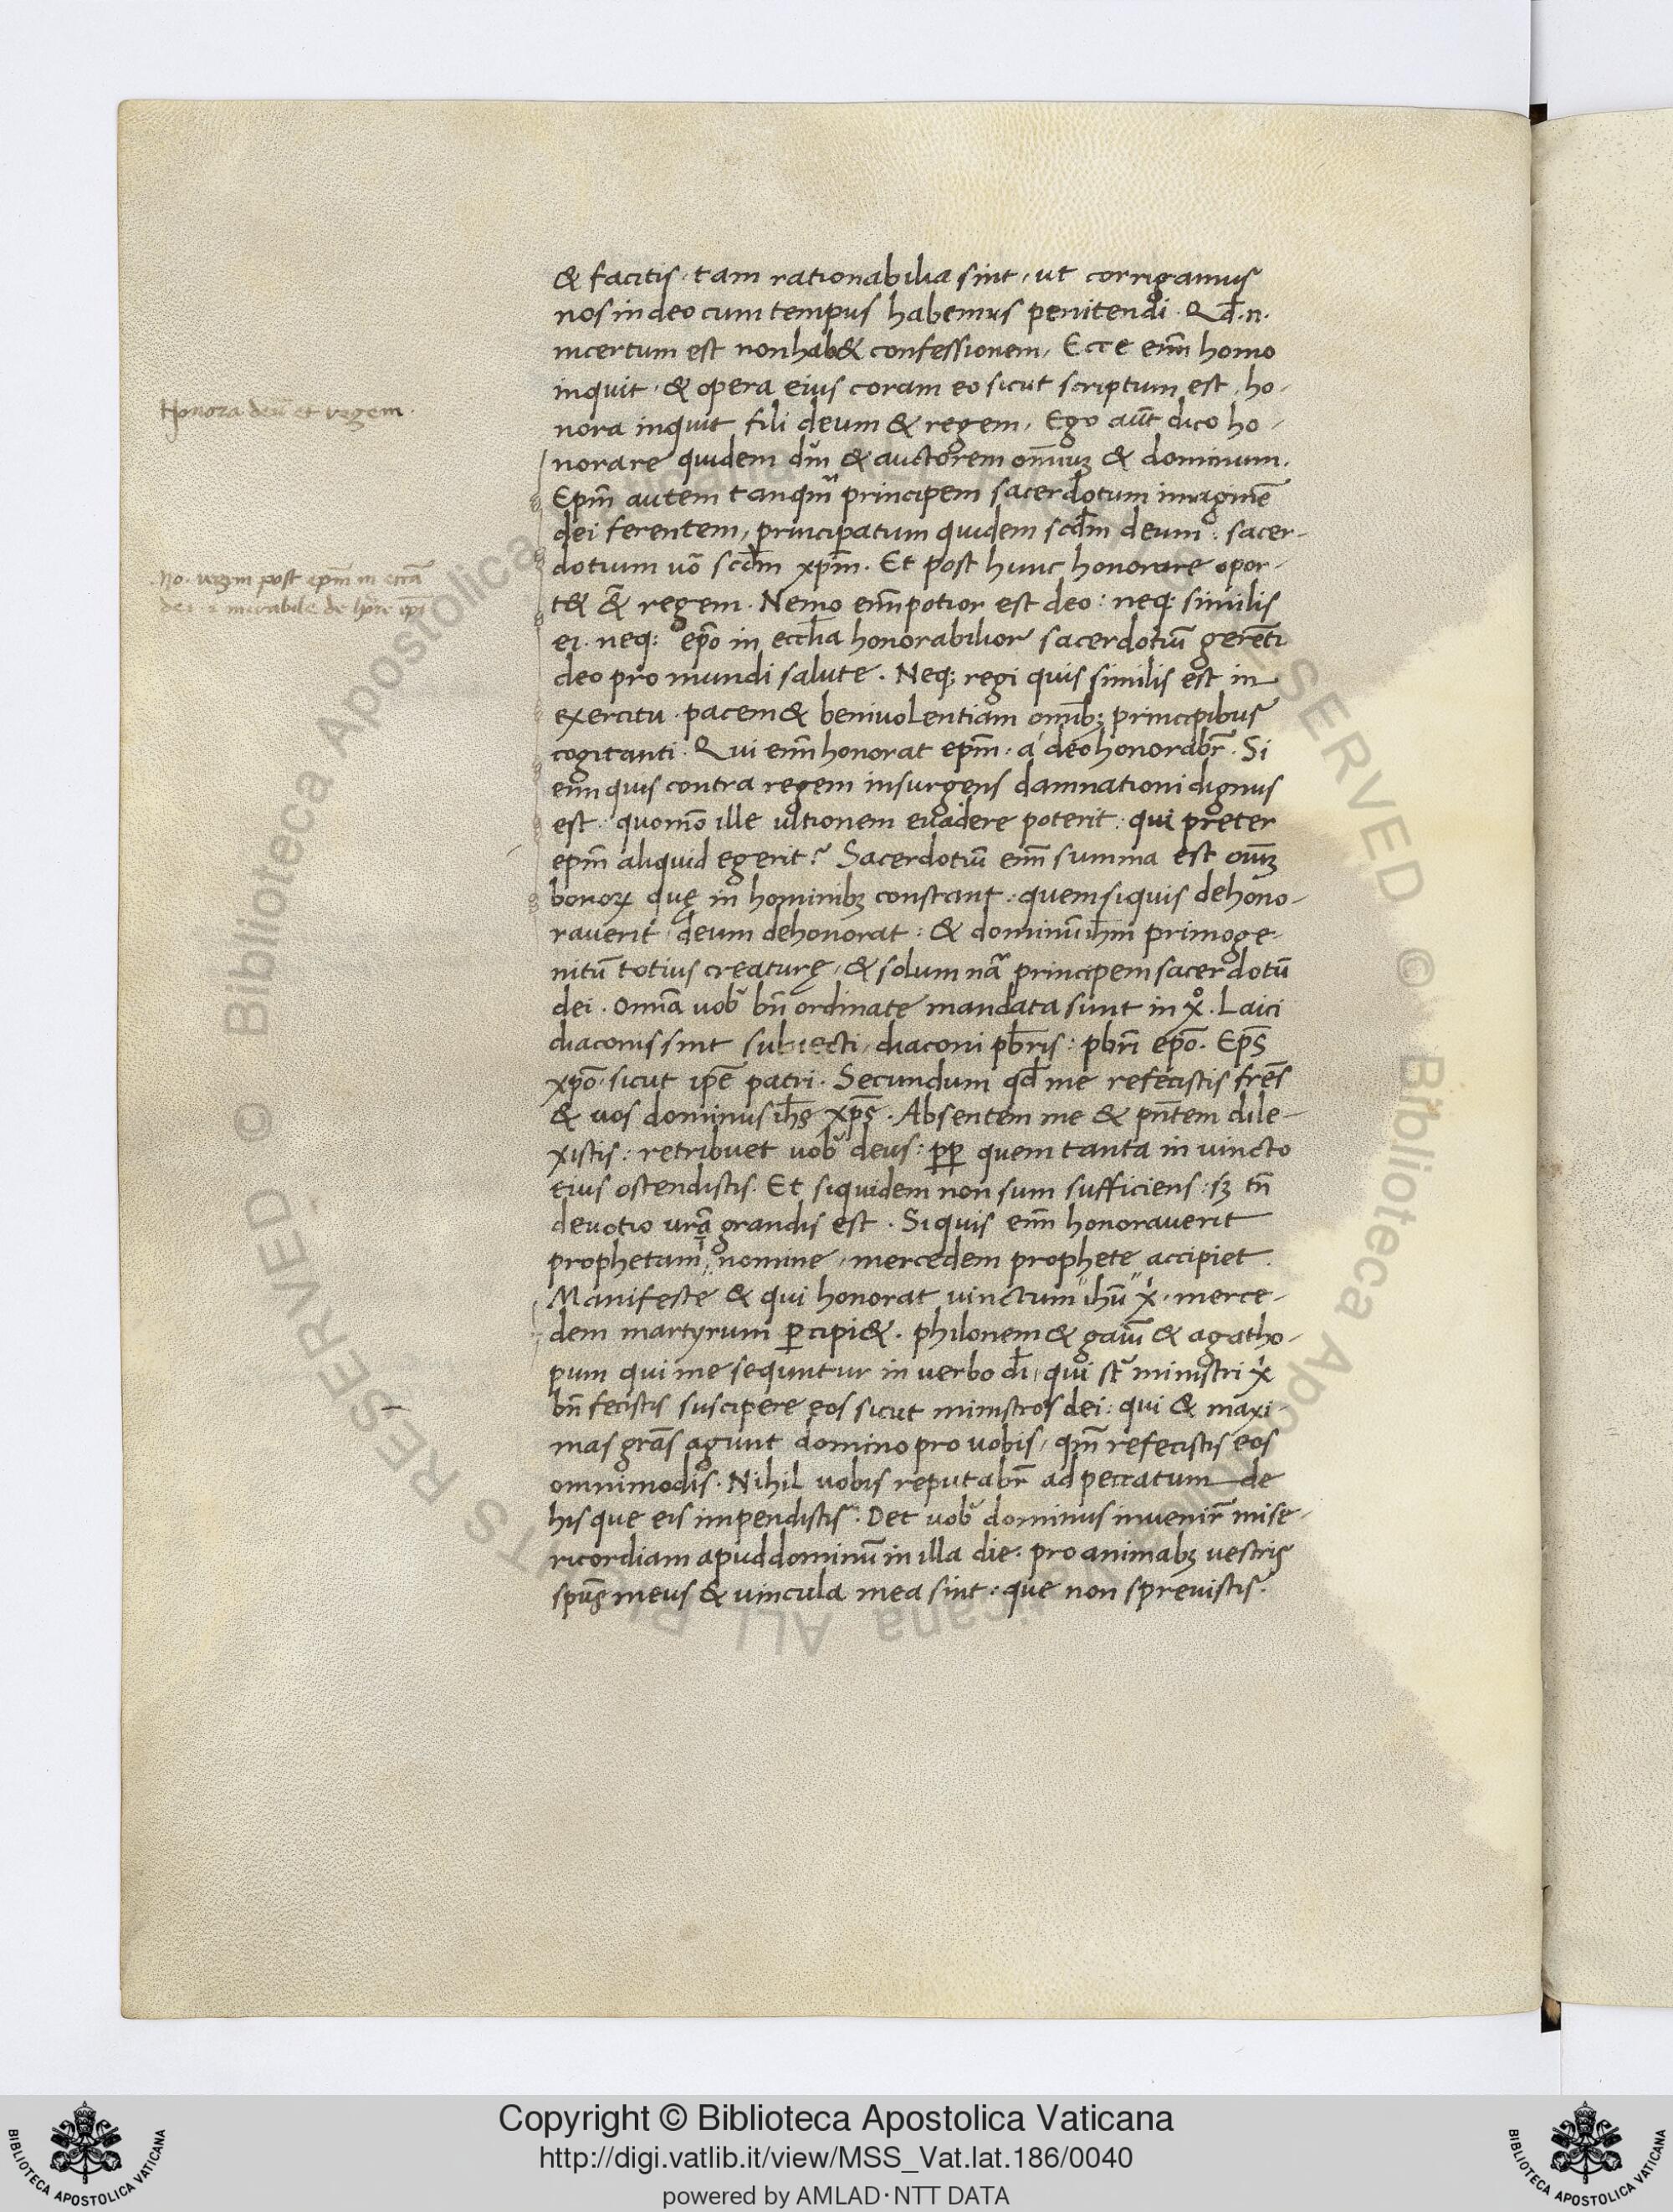 & facitis · tam rationabilia sint, ut corrigamus
nos in deo cum tempus habemus penitendi · Qđ .n.
incertum est non hab& confessionem, Ecce enī homo
inquit · & opera eius coram eo sicut scriptum est, ho-
Honora deū et regem.
nora inquit fili deum & regem, Ego aūt dico ho-
norare quidem dm̄ & auctorem omīuꝫ & dominum.
Epm̄ autem tanqm̄ principem sacerdotum imaginē
dei ferentem, principatum quidem scdm̄ deum: sacer-
No. regem post epm̄ in
dotium uō scdm̄ xpm̄. Et post hunc honorare opor-
mirabile de
t& & regem. Nemo enī potior est deo: neq; similis
ei. neq; epō in ecclīa honorabilior sacerdotiū gerēti
deo pro mundi salute. Neq; regi quis similis est in
exercitu · pacem & beniuolentiam omībꝫ principibus
cogitanti. Qui enī honorat epm̄ · a deo honorabr̄. Si
enī quis contra regem insurgens damnationi dignus
est: quomō ille ultionem euadere poterit: qui preter
epm̄ aliquid egerit? Sacerdotiū enī summa est oīuꝫ
bonoꝝ quę in hominibꝫ constant: quem siquis dehono-
rauerit, deum dehonorat: & dominū ihm̄ primoge-
nitū totius creaturę, & solum nā principem sacerdotū
dei. Omīa uob̄ bn̄ ordinate mandata sunt in x̊. Laici
diaconis sint subiecti, diaconi pbrīs: pbrī epō. Ep̄s
xpō sicut ipē patri. Secundum qđ me refecistis frēs
& uos dominus ihs̄ xps̄. Absentem me & pn̄tem dile-
xistis: retribuet uob̄ deus: ꝓp quem tanta in uincto
eius ostendistis. Et siquidem non sum sufficiens: sꝫ tn̄
deuotio urā grandis est. Siquis enī honorauerit
prophetam ī nomine, mercedem prophete accipiet.
Manifeste & qui honorat uinctum ihū x̊. merce-
dem martyrum ꝑcipi&. philonem & gaiū & agatho-
pum qui me sequntur in uerbo dī, qui st̄ ministri x̊
bn̄ fecistis suscipere eos sicut ministros dei: qui & maxi-
mas grās agunt domino pro uobis, qm̄ refecistis eos
omnimodis. Nihil uobis reputabr̄ ad peccatum de
his que eis impendistis. Det uob̄ dominus inuenir̄ mise-
ricordiam apud dominū in illa die: pro animabꝫ uestris
spūs meus & uincula mea sint: que non spreuistis.
© Biblioteca Apostolica Vaticana ALL RIGHTS RESERVED
Copyright © Biblioteca Apostolica Vaticana
http://digi.vatlib.it/view/MSS_Vat.lat.186/0040
powered by AMLAD·NTT DATA
BIBLIOTECA APOSTOLICA VATICANA
BIBLIOTECA APOSTOLICA VATICANA